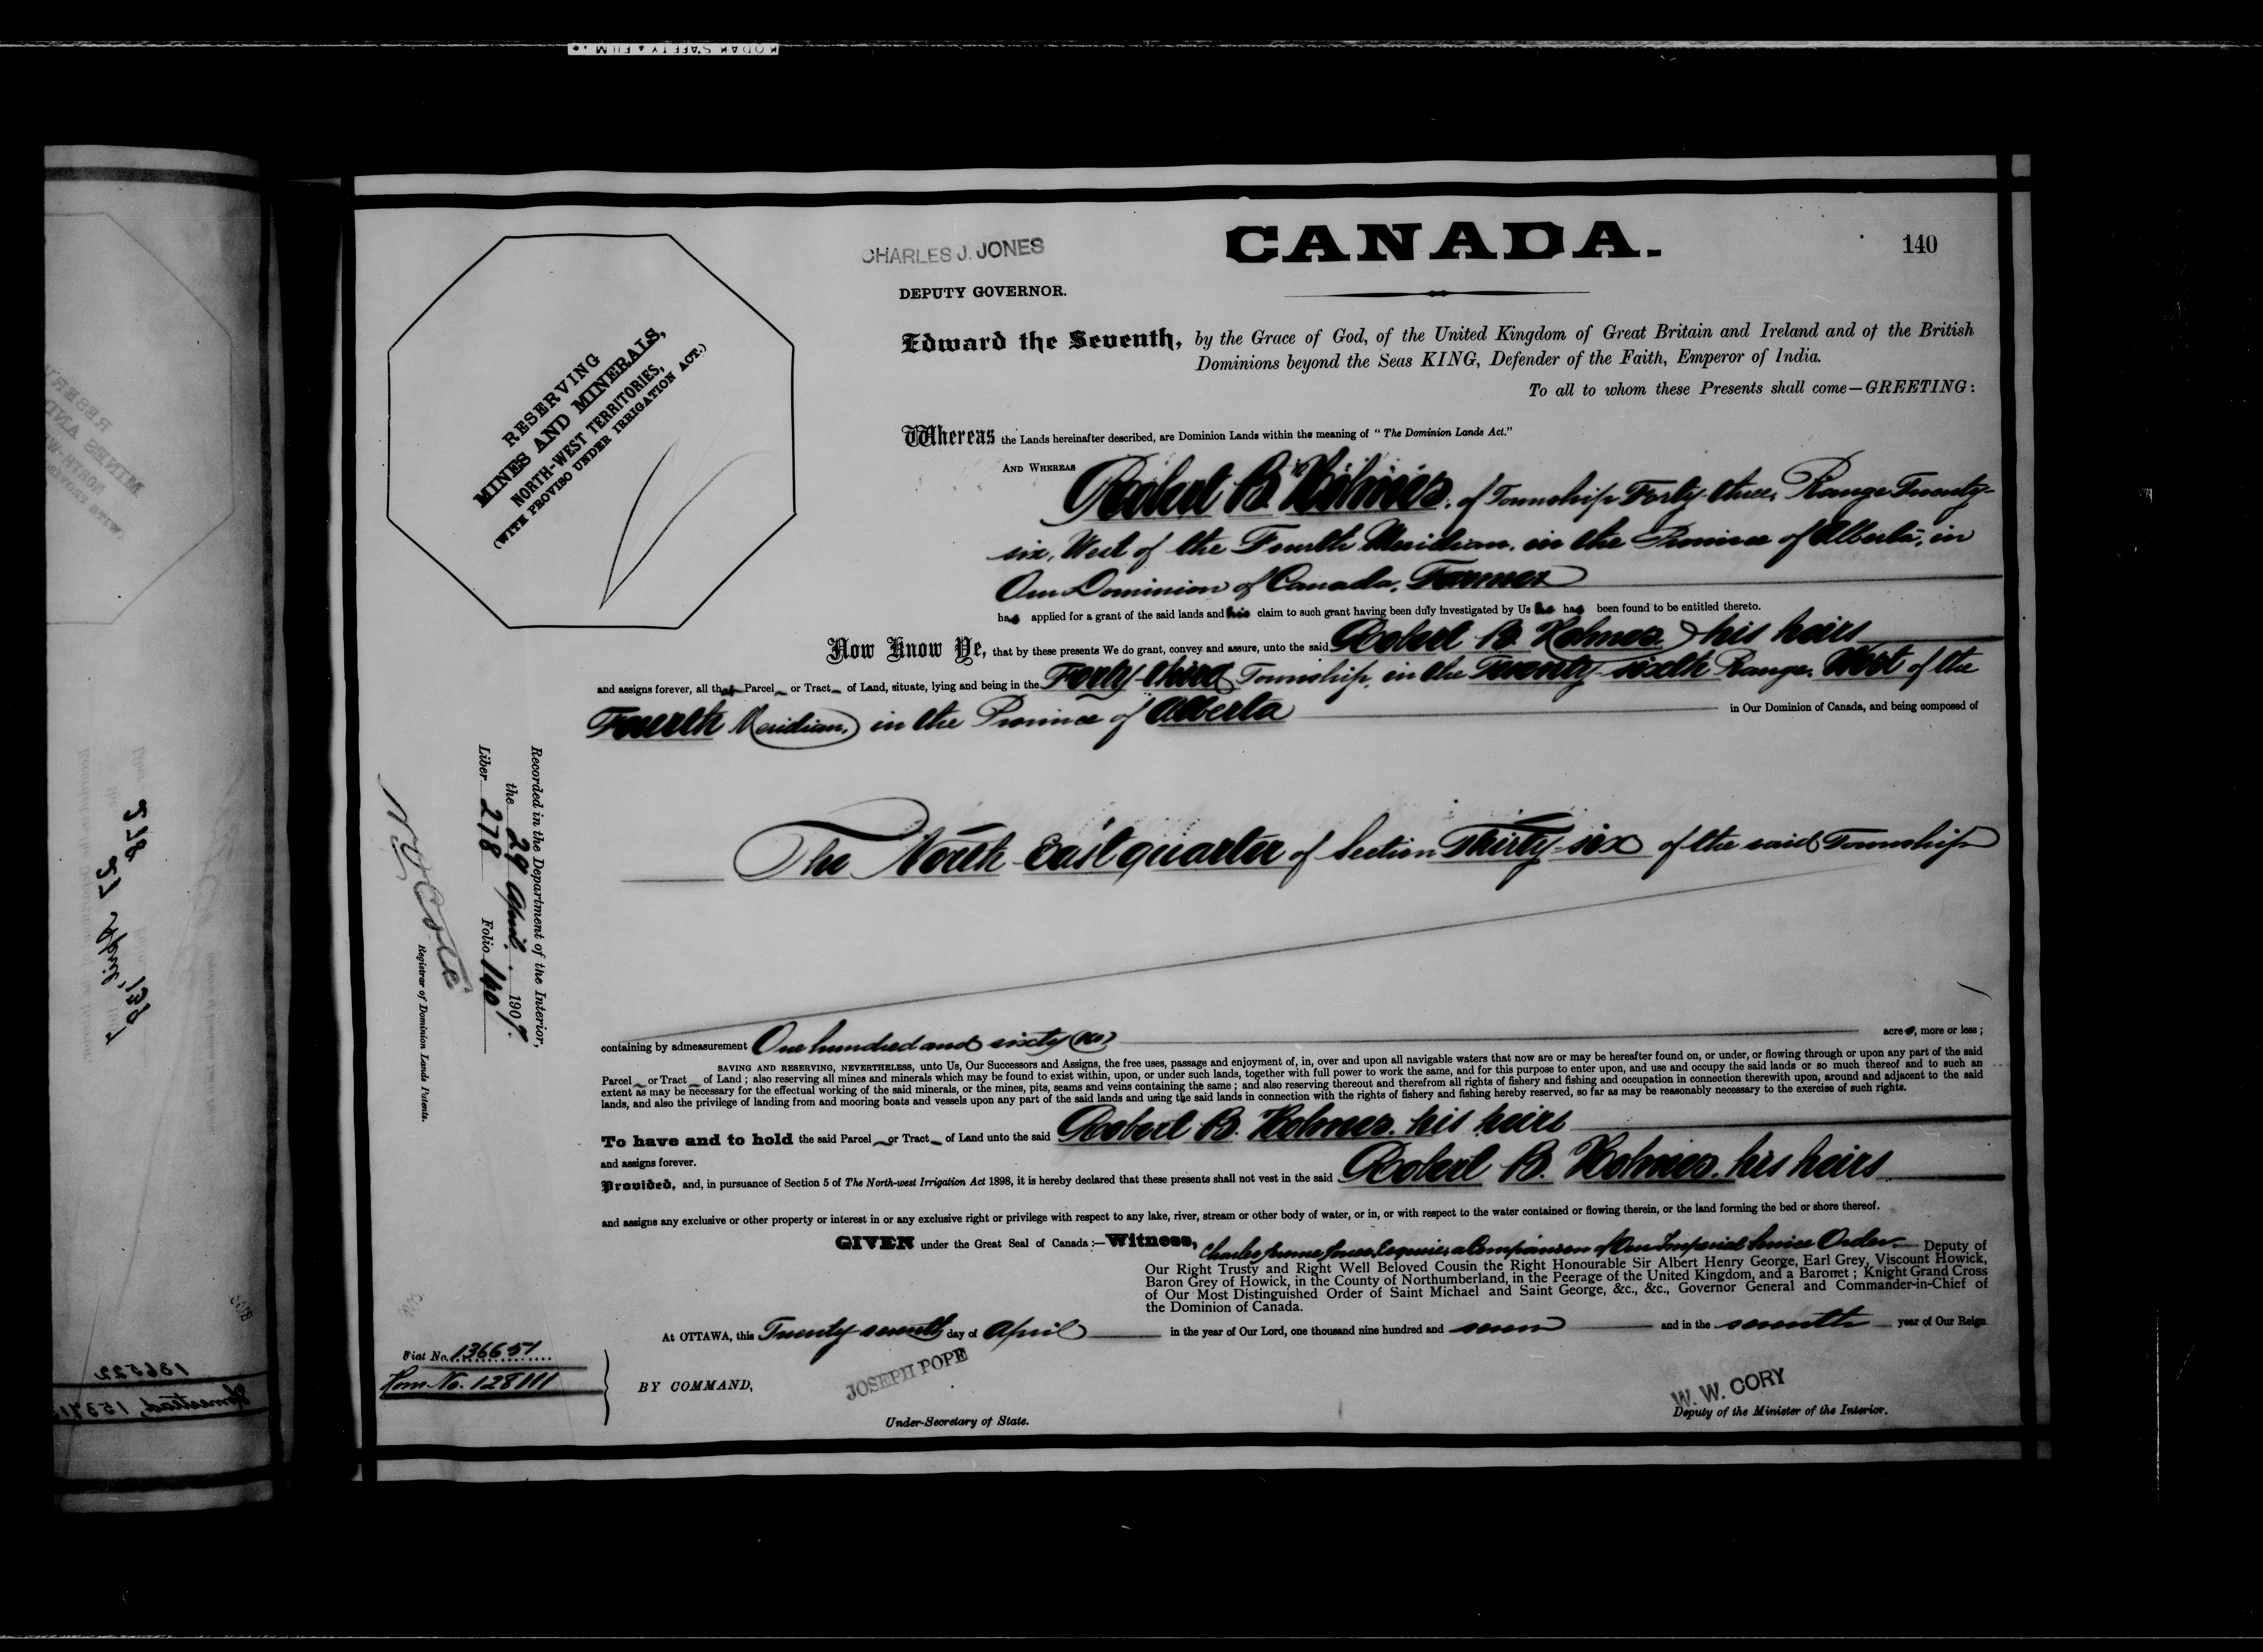 KODAK SAFETY FILM
CANADA.
140
CHARLES J. JONES
DEPUTY GOVERNOR.
RESERVING
MINES AND MINERALS,
NORTH-WEST TERRITORIES,
(WITH PROVISO UNDER IRRIGATION ACT.)
Edward the Seventh, by the Grace of God, of the United Kingdom of Great Britain and Ireland and of the British
Dominions beyond the Seas KING, Defender of the Faith, Emperor of India.
To all to whom these Presents shall come—GREETING:
Whereas the Lands hereinafter described, are Dominion Lands within the meaning of "The Dominion Lands Act."
AND WHEREAS Robert B. Holmes, of Township Forty-three, Range Twenty-
six, West of the Fourth Meridian, in the Province of Alberta, in
Our Dominion of Canada, Farmer
has applied for a grant of the said lands and his claim to such grant having been duly investigated by Us he has been found to be entitled thereto.
Now Know Ye, that by these presents We do grant, convey and assure, unto the said Robert B. Holmes, his heirs
and assigns forever, all that Parcel or Tract of Land, situate, lying and being in the Forty-third Township, in the Twenty-sixth Range, West of the
Fourth Meridian, in the Province of Alberta in Our Dominion of Canada, and being composed of
The North East quarter of Section Thirty-six of the said Township
containing by admeasurement One hundred and sixty (160) acres, more or less;
SAVING AND RESERVING, NEVERTHELESS, unto Us, Our Successors and Assigns, the free uses, passage and enjoyment of, in, over and upon all navigable waters that now are or may be hereafter found on, or under, or flowing through or upon any part of the said
Parcel or Tract of Land; also reserving all mines and minerals which may be found to exist within, upon, or under such lands, together with full power to work the same, and for this purpose to enter upon, and use and occupy the said lands or so much thereof and to such an
extent as may be necessary for the effectual working of the said minerals, or the mines, pits, seams and veins containing the same; and also reserving thereout and therefrom all rights of fishery and fishing and occupation in connection therewith upon, around and adjacent to the said
lands, and also the privilege of landing from and mooring boats and vessels upon any part of the said lands and using the said lands in connection with the rights of fishery and fishing hereby reserved, so far as may be reasonably necessary to the exercise of such rights.
To have and to hold the said Parcel or Tract of Land unto the said Robert B. Holmes, his heirs
and assigns forever.
Provided, and, in pursuance of Section 5 of The North-west Irrigation Act 1898, it is hereby declared that these presents shall not vest in the said Robert B. Holmes, his heirs
and assigns any exclusive or other property or interest in or any exclusive right or privilege with respect to any lake, river, stream or other body of water, or in, or with respect to the water contained or flowing therein, or the land forming the bed or shore thereof.
GIVEN under the Great Seal of Canada:—Witness, Charles Jones, Esquire, a Companion of Our Imperial Service Order, Deputy of
Our Right Trusty and Right Well Beloved Cousin the Right Honourable Sir Albert Henry George, Earl Grey, Viscount Howick,
Baron Grey of Howick, in the County of Northumberland, in the Peerage of the United Kingdom, and a Baronet; Knight Grand Cross
of Our Most Distinguished Order of Saint Michael and Saint George, &c., &c., Governor General and Commander-in-Chief of
the Dominion of Canada.
At OTTAWA, this Twenty seventh day of April in the year of Our Lord, one thousand nine hundred and seven and in the seventh year of Our Reign.
BY COMMAND,
JOSEPH POPE
Under-Secretary of State.
W. W. CORY
Deputy of the Minister of the Interior.
Recorded in the Department of the Interior,
the 29 April 1907.
Liber 278 Folio 140
Registrar of Dominion Lands Patents.
Fiat No. 136651
Hom No. 128111